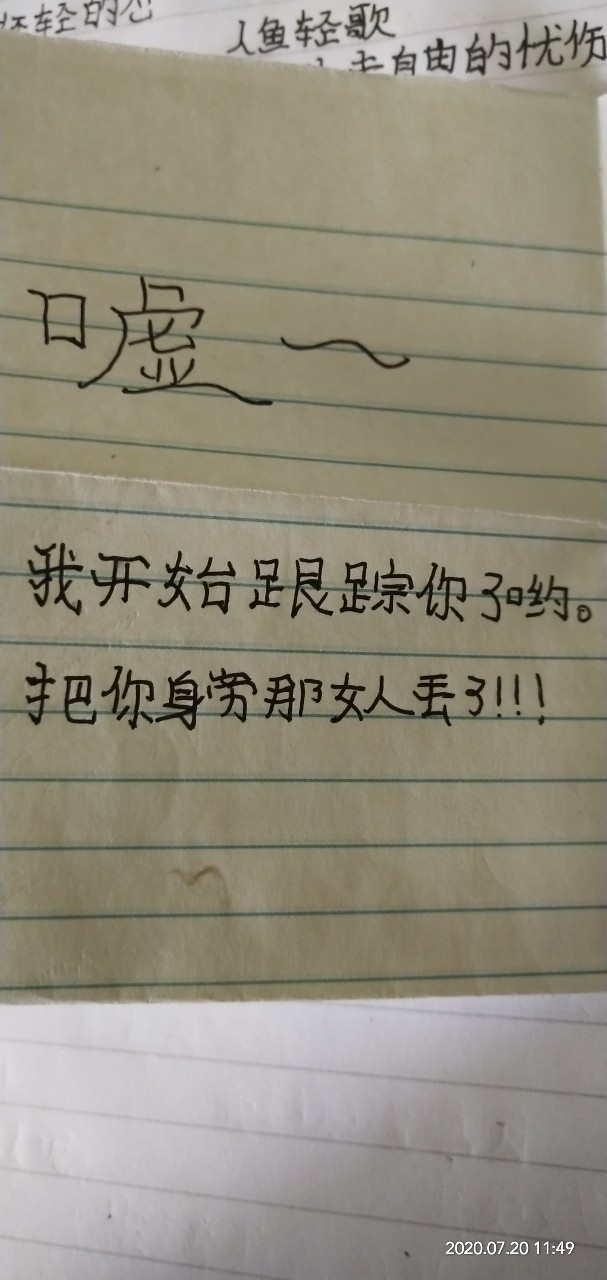 人鱼轻歌
去自由的忧伤
嘘～
我开始跟踪你了哟。
把你身旁那女人丢了!!!
2020.07.20 11:49